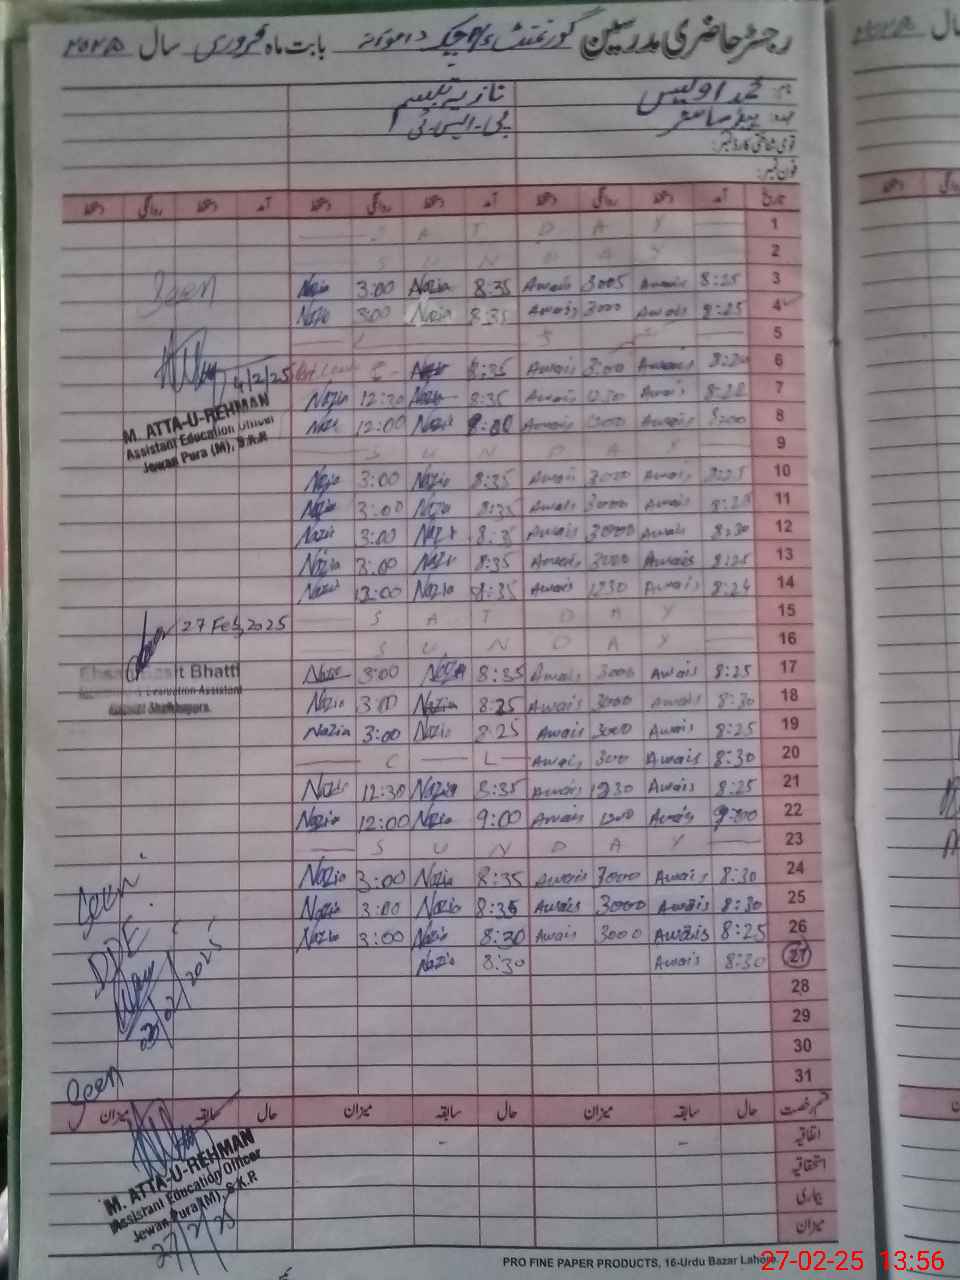 رجسٹر حاضری مدرسین گورنمنٹ بابت ماہ فروری سال ۲۰۲۵
نام: محمد اویس نازیہ تبسم
عہدہ: ہیڈ ماسٹر پی-ایس-ٹی
قومی شناختی کارڈ نمبر:
فون نمبر:
تاریخ آمد دستخط روانگی دستخط آمد دستخط روانگی دستخط آمد دستخط روانگی دستخط
S A T D A Y 1
S U N D A Y 2
Seen Nazia 3:00 Nazia 8:35 Awais 3005 Awais 8:25 3
Nazia 3:00 Nazia 8:35 Awais 3000 Awais 8:25 4
5
4/2/25 8:35 Awais 3:00 Awais 6
Nazia 12:30 8:35 Awais 1230 Awais 7
M. ATTA-U-REHMAN
Assistant Education Officer
Jewan Pura (M), S.K.P
Nazia 12:00 Nazia 9:00 Awais Awais 8
S U N D A Y 9
Nazia 3:00 Nazia 8:35 Awais 3000 Awais 8:25 10
Nazia 3:00 Nazia 8:35 Awais 3000 Awais 11
Nazia 3:00 Nazia 8:35 Awais 3000 Awais 8:30 12
Nazia 3:00 Nazia 8:35 Awais 3000 Awais 8:25 13
Nazia Nazia 8:35 Awais 1230 Awais 8:24 14
27 Feb, 2025 S A T D A Y 15
S U N D A Y 16
Bhatti
Evaluation Assistant
Nazia 3:00 Nazia 8:35 Awais 3000 Awais 8:25 17
Nazia 3:00 Nazia 8:25 Awais 3000 Awais 8:30 18
Nazia 3:00 Nazia 8:25 Awais 3000 Awais 8:25 19
C L Awais 300 Awais 8:30 20
Nazia 12:30 Nazia 8:35 Awais 1230 Awais 8:25 21
Nazia 12:00 Nazia 9:00 Awais 1200 Awais 22
S U N D A Y 23
Seen Nazia 3:00 Nazia 8:35 Awais 3000 Awais 8:30 24
Nazia 3:00 Nazia 8:35 Awais 3000 Awais 8:30 25
Nazia 3:00 Nazia 8:30 Awais 3000 Awais 8:25 26
Nazia 8:30 Awais 8:30 27
28
29
30
31
Seen
قسم رخصت حال سابقہ میزان حال سابقہ میزان حال سابقہ میزان
اتفاقیہ
استحقاقیہ
بیماری
میزان
M. ATTA-U-REHMAN
Assistant Education Officer
Jewan Pura (M), S.K.P
27/2/25
PRO FINE PAPER PRODUCTS, 16-Urdu Bazar Lahore.
27-02-25 13:56